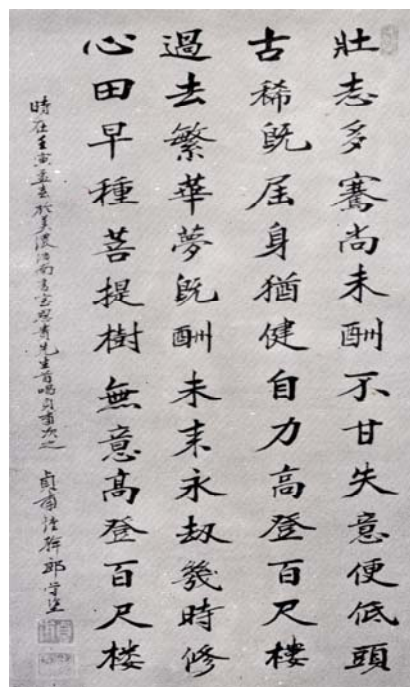 壯志多騫尚未酬不甘失意便低頭
古稀既屆身猶健自力高登百尺樓
過去繁華夢既酬未来永劫幾時修
心田早種菩提樹無意高登百尺楼
時在壬寅孟春於美濃治南書室先生首唱貞甫次之 貞甫幹郎學塗